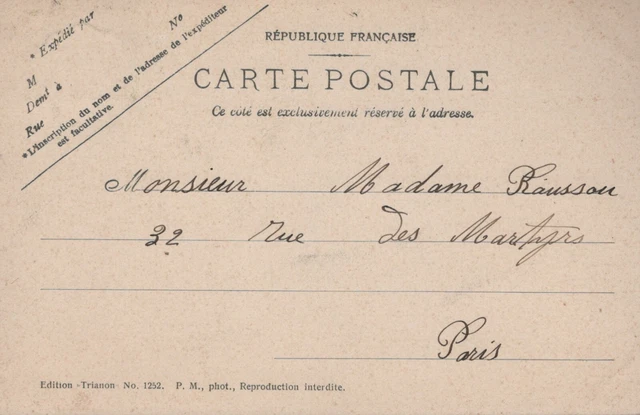 * Expédié par
M
Demt à
Rue No
* L'inscription du nom et de l'adresse de l'expéditeur
est facultative.
RÉPUBLIQUE FRANÇAISE
CARTE POSTALE
Ce côté est exclusivement réservé à l'adresse.
Monsieur Madame
32 rue des Martyrs
Paris
Edition -Trianon No. 1252. P. M., phot., Reproduction interdite.